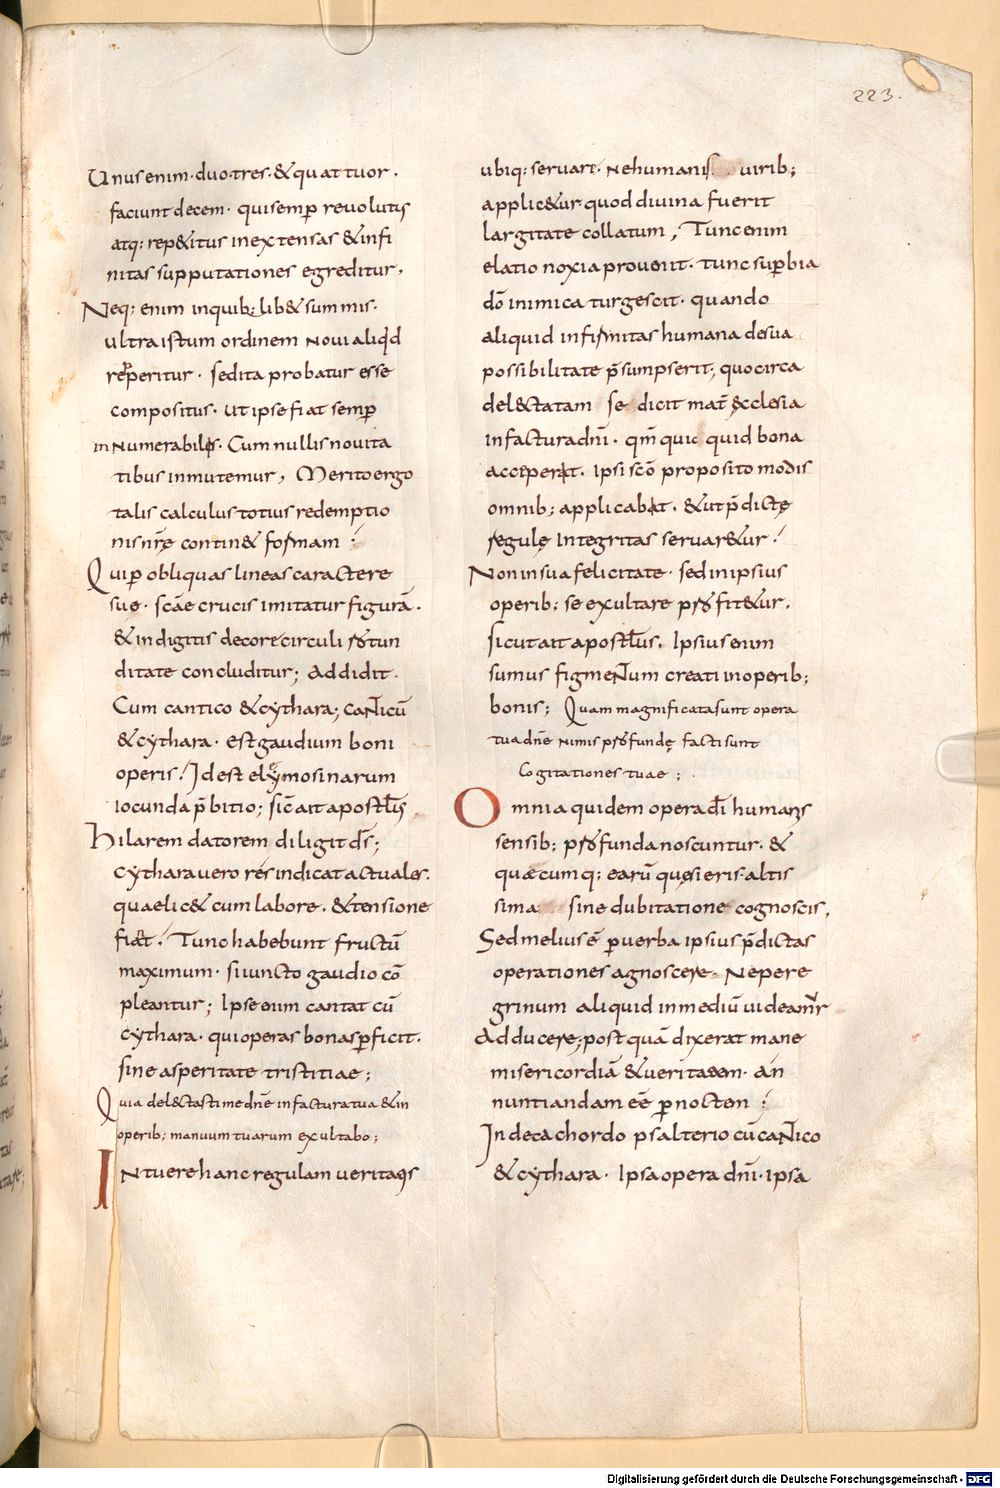 223.
Unus enim· duo· tres· & quattuor·
faciunt decem· qui semp̄ reuolutis
atq: rep&itus in extensas & infi
nitas supputationes egreditur,
Neq: enim in quib; lib& summis·
ultra istum ordinem noui aliq̇d
repperitur· sed ita probatur esse
compositus· ut ipse fiat semp̄
innumerabiles· Cum nullis nouita
tibus inmutemur, Merito ergo
talis calculus totius redemptio
nis nr̄ę contin& formam :
Qui p̄ obliquas lineas caractere
sue· sc̄ae crucis imitatur figurā·
& in digitis decore circuli rotun
ditate concluditur; addidit·
Cum cantico & cythara; canticū
& cythara· est gaudium boni
operis! Id est elymosinarum
iocunda p̄bitio; sic̄ ait apostl̄s
hilarem datorem diligit d̄s;
cythara uero res indicat actuales·
quae lic& cum labore· & tensione
fiat! Tunc habebunt fructū
maximum· si iuncto gaudio cō
pleantur; Ipse enim cantat cū
cythara· qui operas bonas p̄ficit·
sine asperitate tristitiae;
Quia del&asti me dn̄e in factura tua & in
operib; manuum tuarum exultabo;
Intuere hanc regulam ueritatis
ubiq: seruari· ne humanis uirib;
applic&ur quod diuina fuerit
largitate collatum, Tunc enim
elatio noxia prouenit· tunc sup̄bia
dō inimica turgescit· quando
aliquid infirmitas humana de sua
possibilitate p̄sumpserit; quocirca
delectatam se dicit mat̄ ęcclesia
in factura dn̄i· qm̄ quic quid bona
acceperat· ipsi sc̄o proposito modis
omnib; applicabat· & ut p̄dictę
regulę integritas seruar&ur!
Non in sua felicitate· sed in ipsius
operib; se exultare profit&ur·
sicut ait apostl̄us· Ipsius enim
sumus figmentum creati in operib;
bonis; Quam magnificata sunt opera
tua dn̄e nimis profundę facti sunt
Cogitationes tuae ;
Omnia quidem opera dī humanis
sensib; profunda noscuntur· &
quaecumq; earū quęsieris· altis
sima sine dubitatione cognoscis,
Sed melius ē p̄ uerba ipsius p̄dictas
operationes agnoscere· Ne pere
grinum aliquid in mediū uideamur
adducere; post quā dixerat mane
misericordiā & ueritatem· an
nuntiandam eē p̄ noctem ;
In decachordo psalterio cū cantico
& cythara· Ipsa opera dn̄i· ipsa
Digitalisierung gefördert durch die Deutsche Forschungsgemeinschaft - DFG